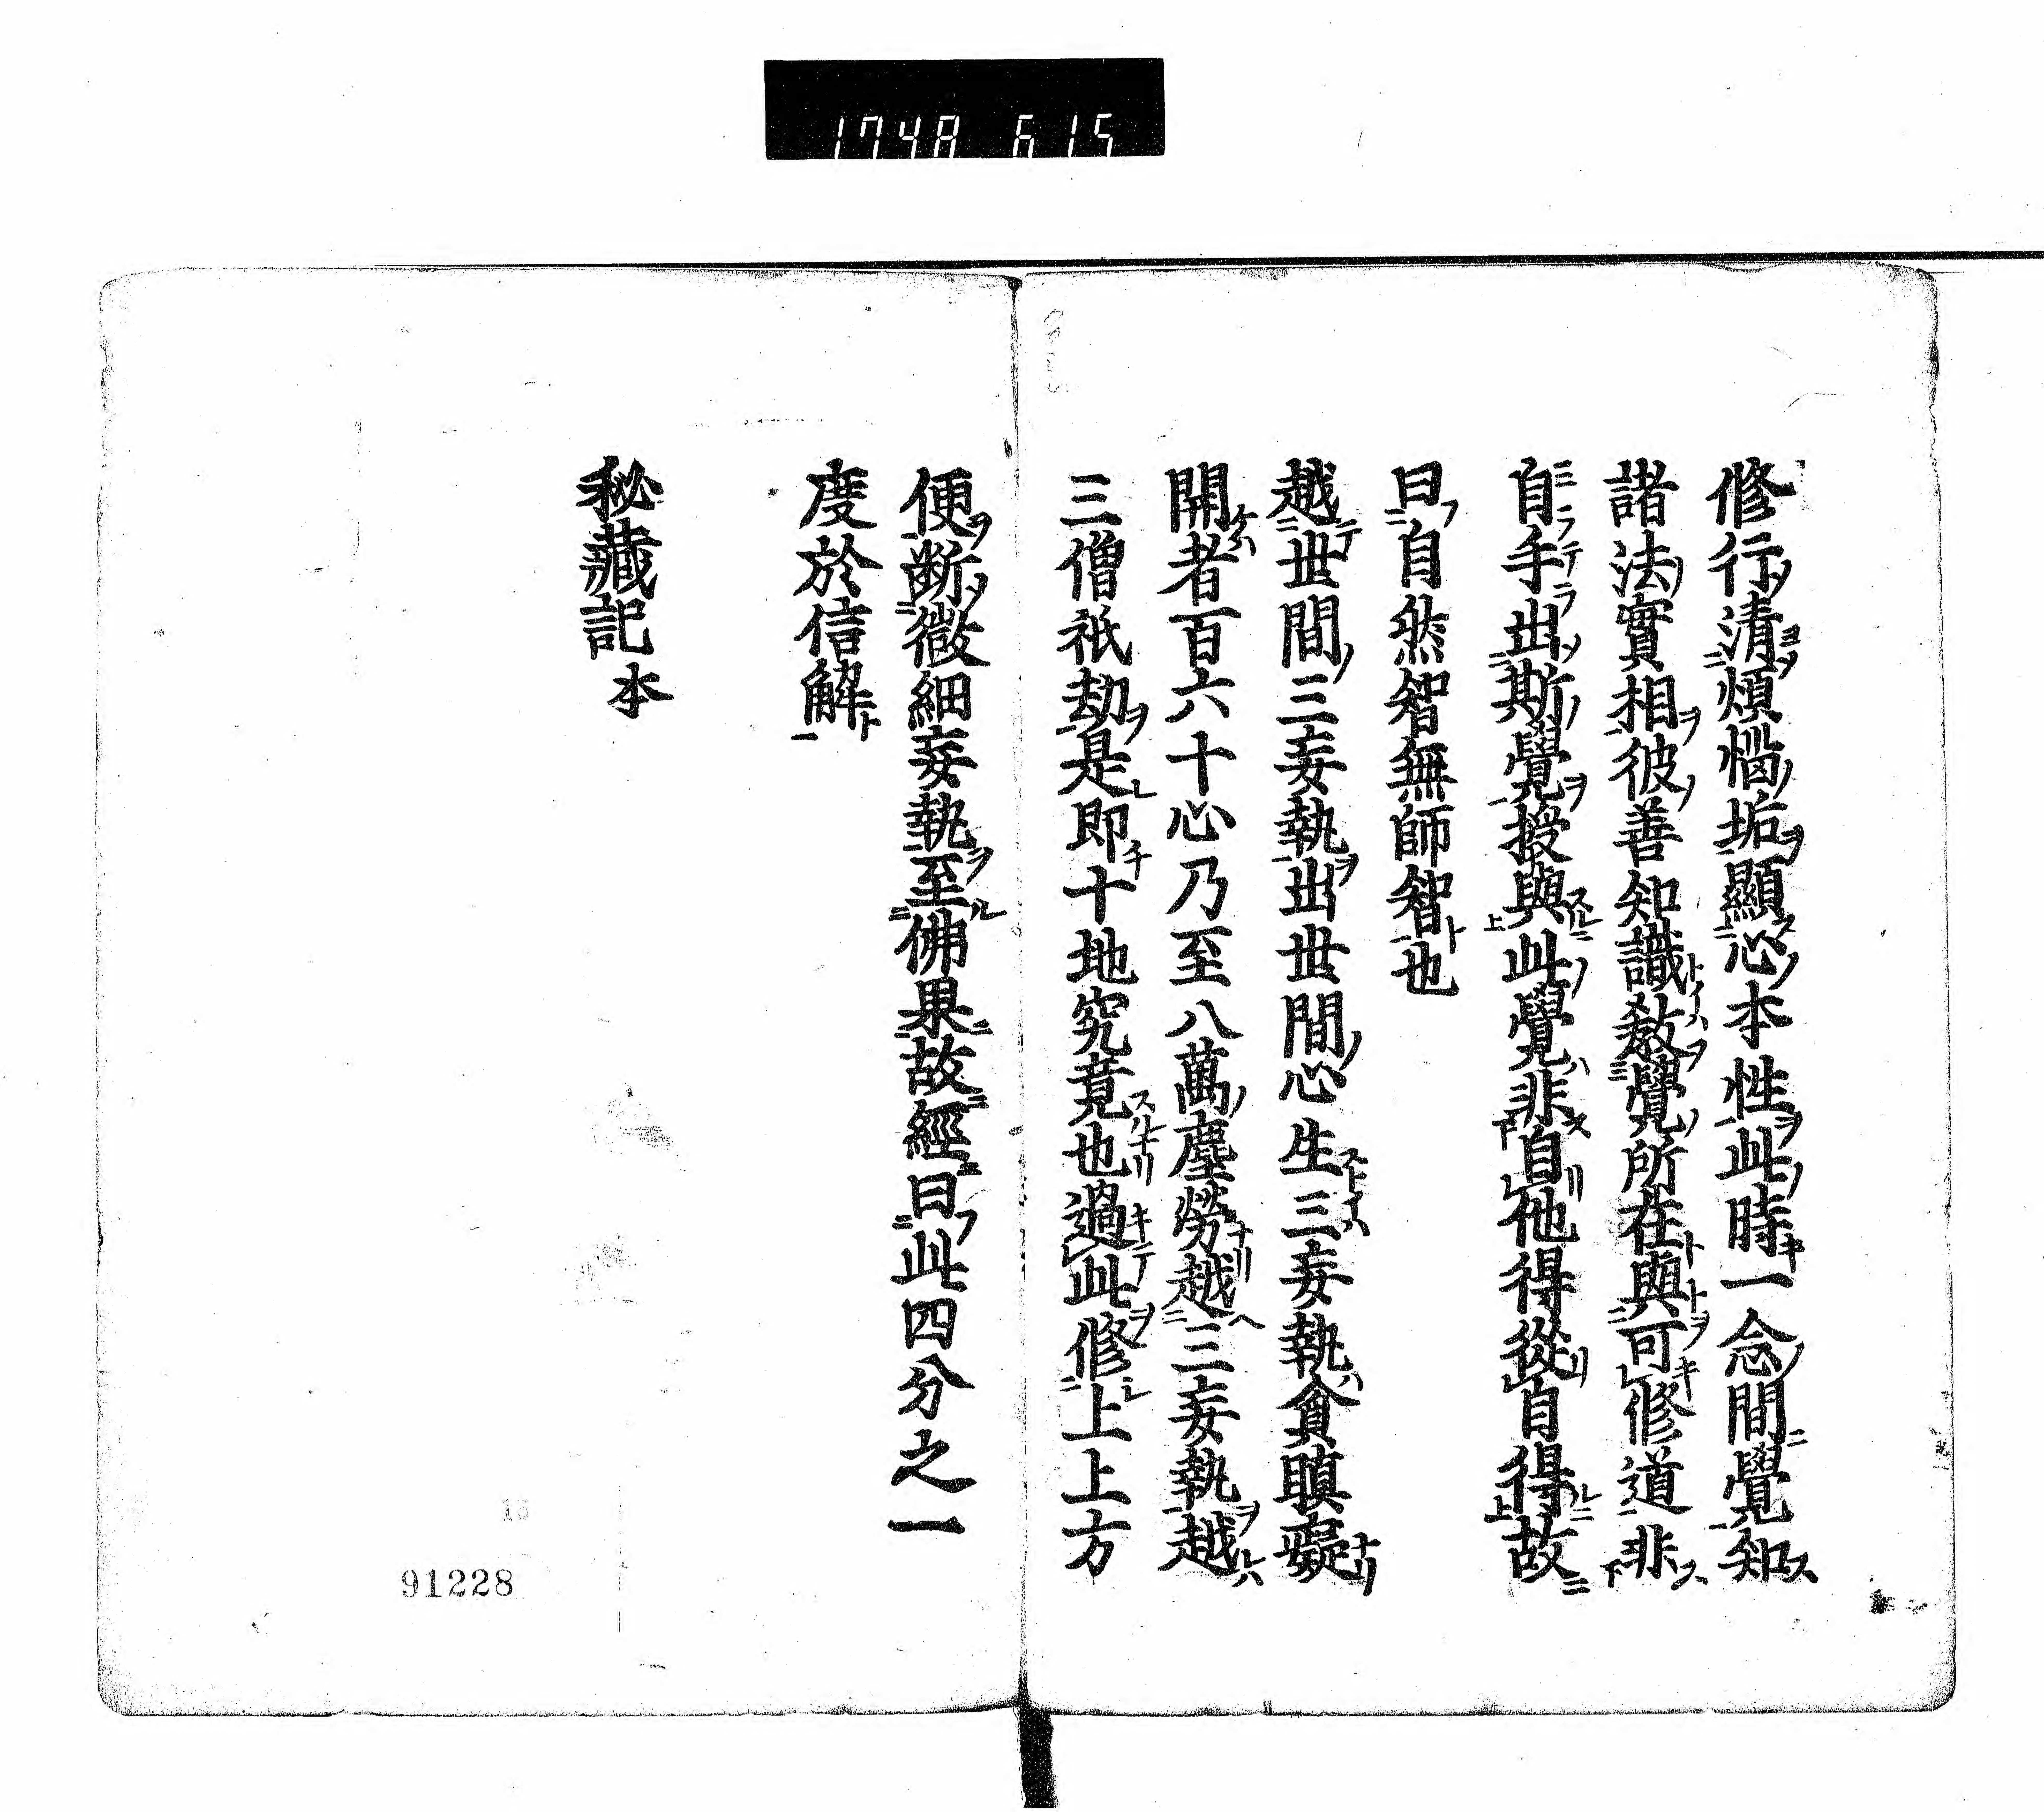 1748 615
修行清煩惱垢顯心本性此時一念間覺知
諸法實相彼善知識教覺所在與可修道非
自手出斯覺授與此覺非自他得從自得故
曰自然智無師智也
越世間三妄執出世間心生三妄執貪瞋癡
開者百六十心乃至八萬塵勞越三妄執越
三僧祇劫是即十地究竟也過此修上上方
便斷微細妄執至佛果故經曰此四分之一
度於信解
秘藏記 本
13
91228